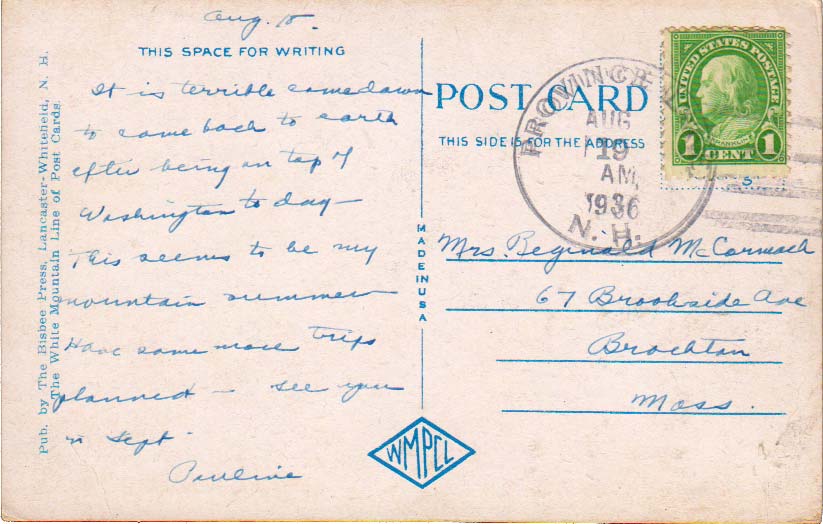 Aug. 18.
THIS SPACE FOR WRITING
It is terrible comedown
to come back to earth
after being on top of
Washington to day—
This seems to be my
mountain summer
Have some more trips
planned — see you
in Sept.
Pauline
Pub. by The Bisbee Press, Lancaster-Whitefield, N. H.
The White Mountain Line of Post Cards.
MADE IN USA
WMPCL
POST CARD
THIS SIDE IS FOR THE ADDRESS
AUG
19
AM
1936
N. H.
UNITED STATES POSTAGE
FRANKLIN
1 CENT 1
S
Mrs. Reginald McCormack
67 Brookside Ave
Brockton
Mass.